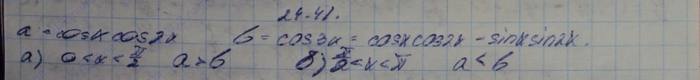 24.48.
a = cosx cos2x b = cos3x = cosx cos2x - sinx sin2x.
а) 0 < x < π/2 a > b б) π/2 < x < π a < b